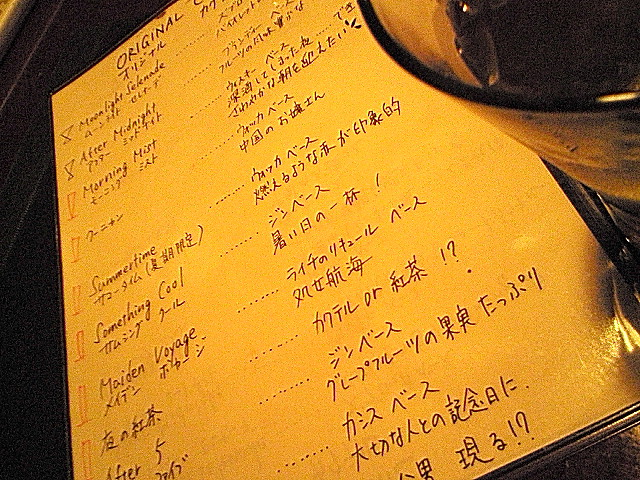 ORIGINAL
オリジナル
Moonlight Serenade
ムーンライト セレナーデ
フルーツの風味豊かな
After Midnight
アフター ミッドナイト
ウィスキー ベース
深酒してしまった夜
Morning Mist
モーニング ミスト
さわやかな朝を迎えたい
ウォッカ ベース
クーニャン
中国のお嬢さん
ウォッカ ベース
燃えるような赤が印象的
Summertime
サマータイム (夏期限定)
ジンベース
暑い日の一杯！
Something Cool
サムシング クール
ライチのリキュール ベース
Maiden Voyage
メイデン ボヤージ
処女航海
夜の紅茶
カクテル or 紅茶 !?
ジンベース
グレープフルーツの果実たっぷり
After 5
ファイブ
カシス ベース
大切な人との記念日に.
現る!?